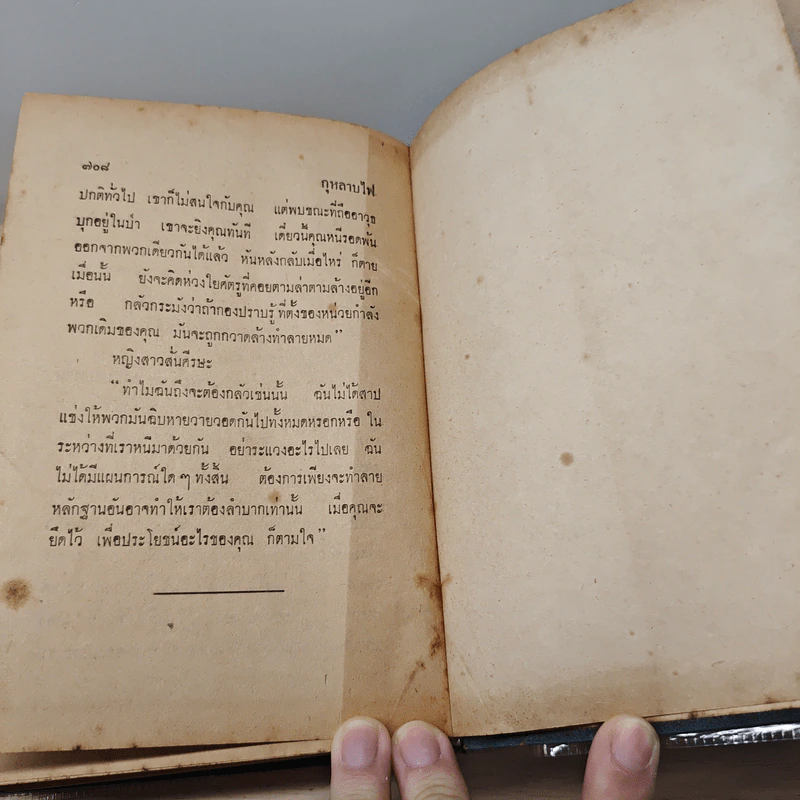 ๗๐๘
กุหลาบไฟ
ปกติทั่วไป เขาก็ไม่สนใจกับคุณ แต่พบขณะที่ถืออาวุธ
บุกอยู่ในป่า เขาจะยิงคุณทันที เดี๋ยวนี้คุณหนีรอดพ้น
ออกจากพวกเดียวกันได้แล้ว หันหลังกลับเมื่อไหร่ ก็ตาย
เมื่อนั้น ยังจะคิดห่วงใยศัตรูที่คอยตามล่าตามล้างอยู่อีก
หรือ กลัวกระมังว่าถ้ากองปราบรู้ที่ตั้งของหน่วยกำลัง
พวกเดิมของคุณ มันจะถูกกวาดล้างทำลายหมด”
หญิงสาวสั่นศีรษะ
“ทำไมฉันถึงจะต้องกลัวเช่นนั้น ฉันไม่ได้สาป
แช่งให้พวกมันฉิบหายวายวอดกันไปทั้งหมดหรอกหรือ ใน
ระหว่างที่เราหนีมาด้วยกัน อย่าระแวงอะไรไปเลย ฉัน
ไม่ได้มีแผนการณ์ใด ๆ ทั้งสิ้น ต้องการเพียงจะทำลาย
หลักฐานอันอาจทำให้เราต้องลำบากเท่านั้น เมื่อคุณจะ
ยึดไว้ เพื่อประโยชน์อะไรของคุณ ก็ตามใจ”